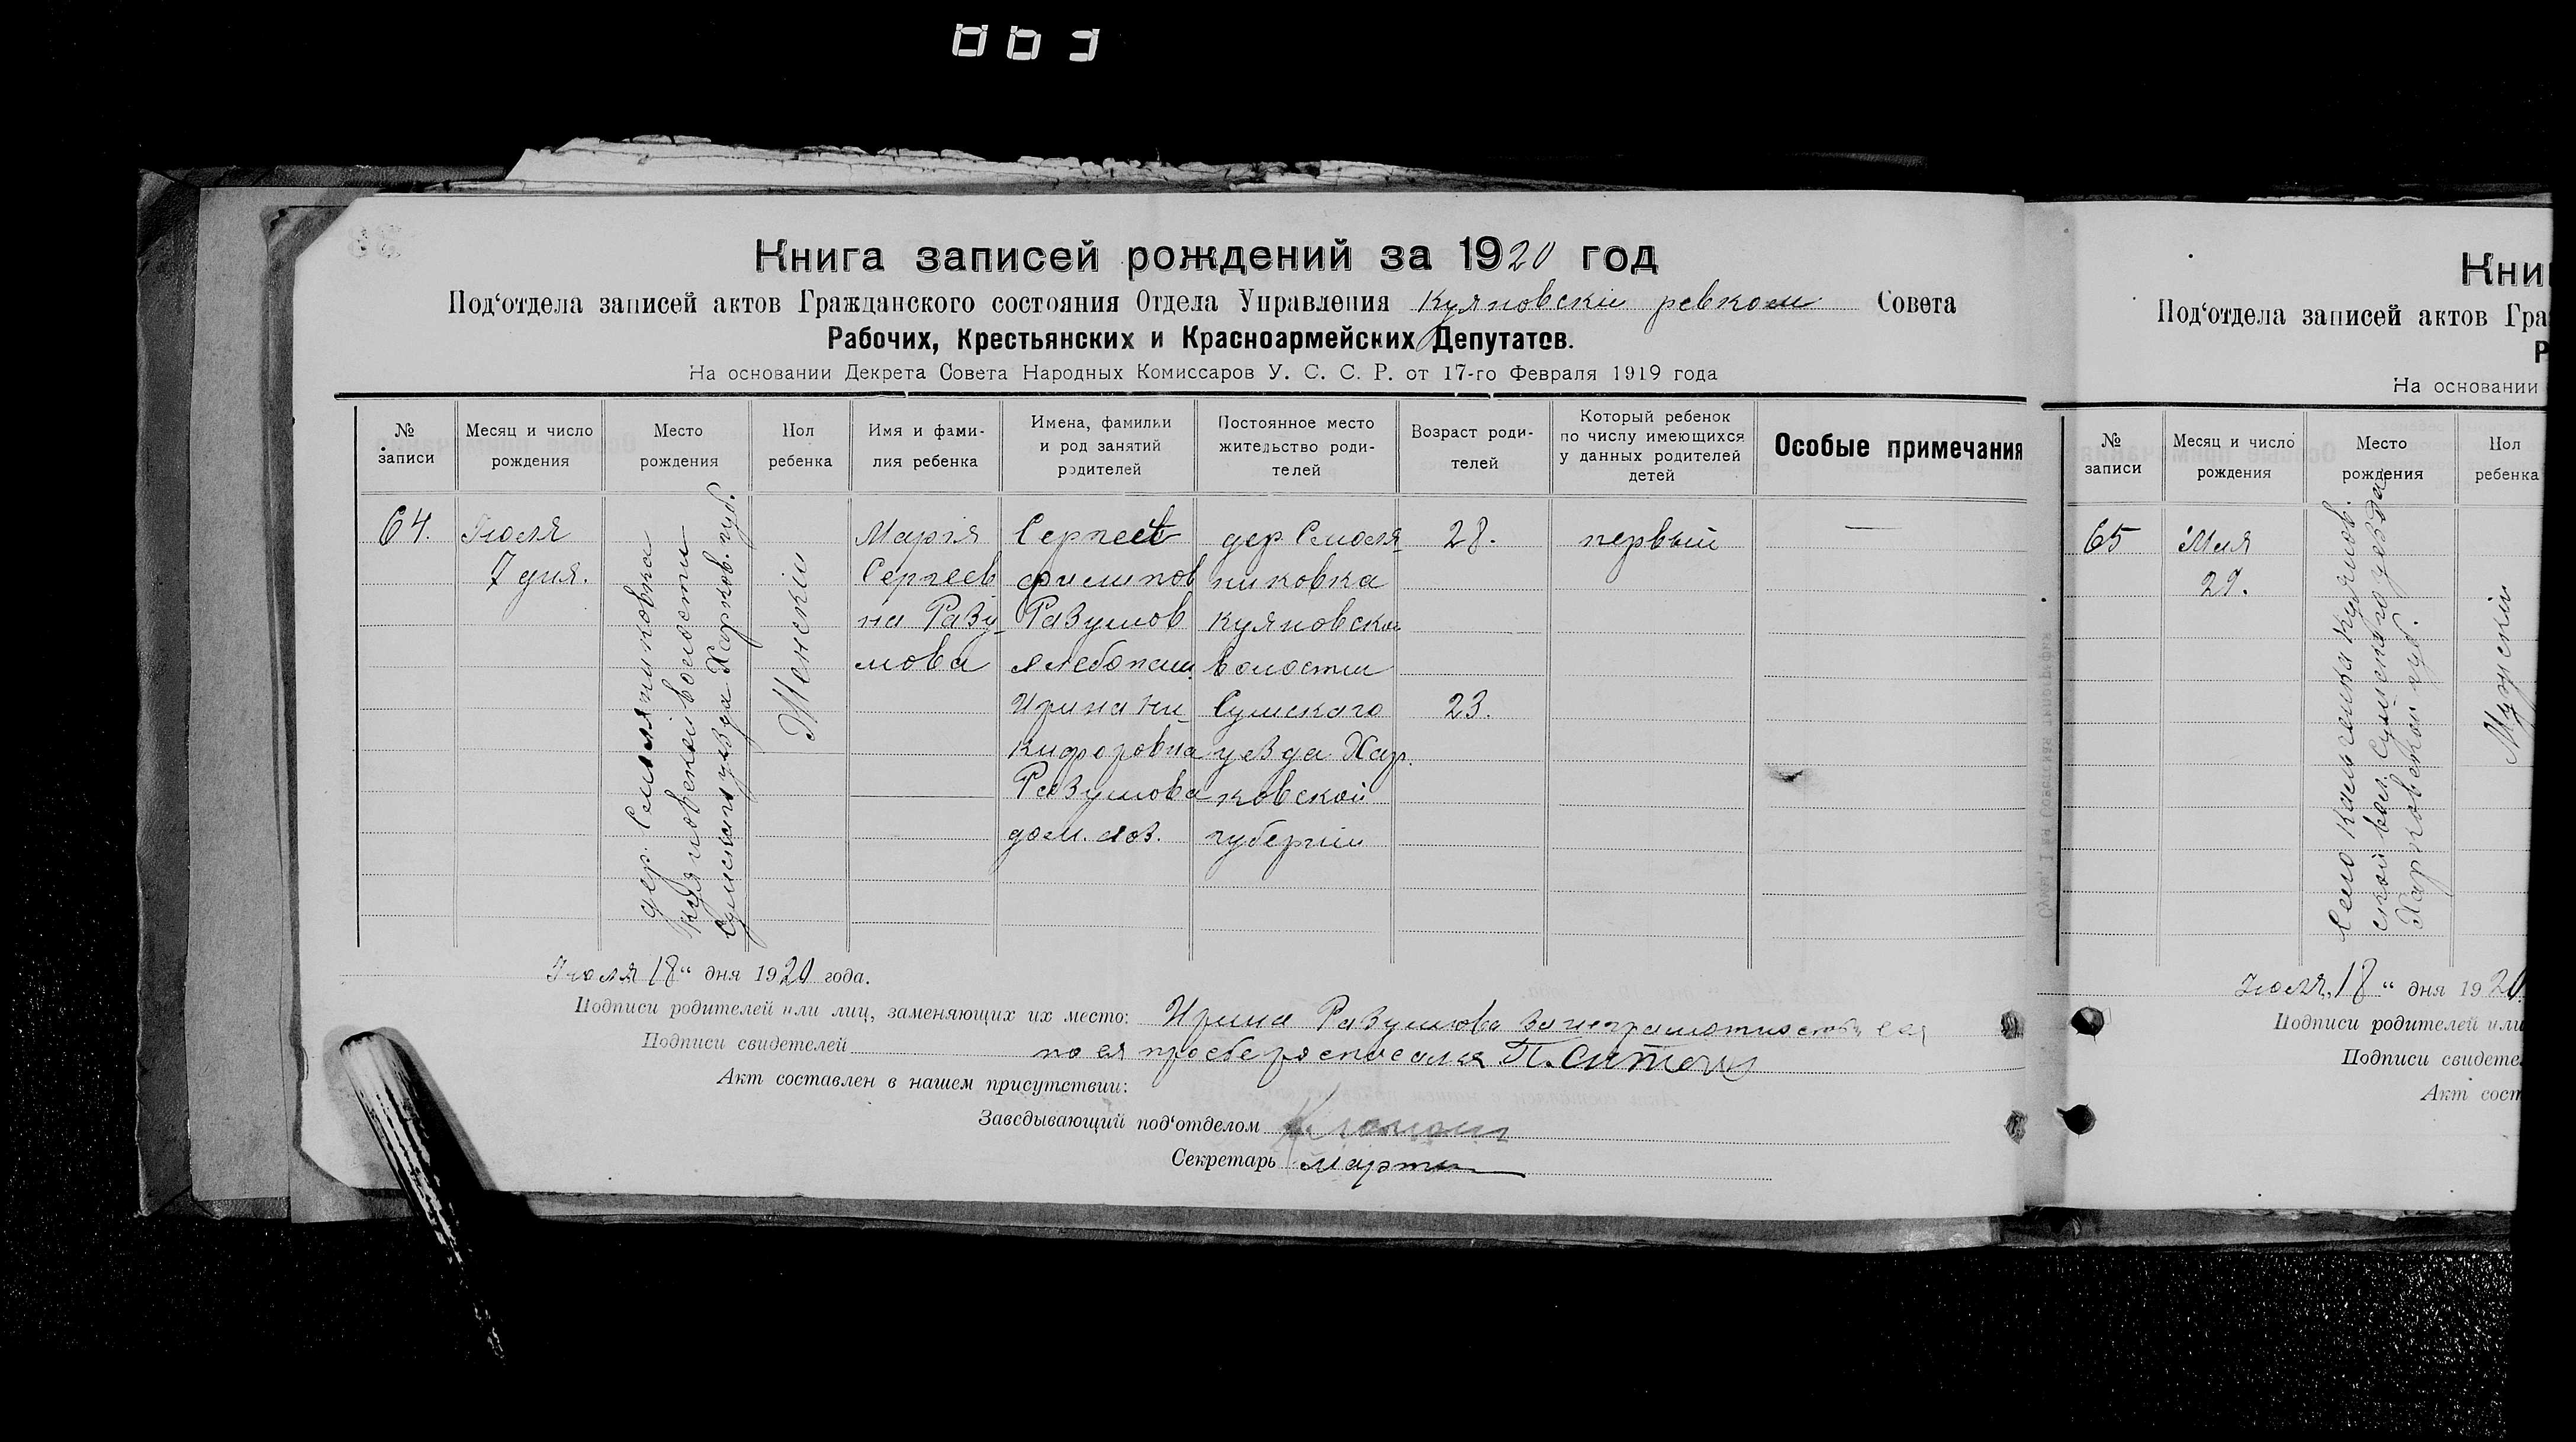 003
Книга записей рождений за 1920 год
Под‘отдела записей актов Гражданского состояния Отдела Управления Куяновскій ревком Совета
Рабочих, Крестьянских и Красноармейских Депутатов.
На основании Декрета Совета Народных Комиссаров У. С. С. Р. от 17-го Февраля 1919 года
№ записи
Месяц и число рождения
Место рождения
Пол ребенка
Имя и фами-
лия ребенка
Имена, фамилии
и род занятий
родителей
Постоянное место
жительство роди-
телей
Возраст роди-
телей
Который ребенок
по числу имеющихся
у данных родителей
детей
Особые примечания
64.
Іюля
7 дня.
дер. Смольниковка
Куяновской волости
Сумскаго уезда Харков. губ.
Женскій
Марія
Сергеев
на Разу-
мова
Сергей
Филипов
Разумов
хлебопаш.
Ирина Ни-
кифоровна
Разумова
дом. хоз.
дер Смоля-
никовка
Куяновской
волости
Сумского
уезда Хар.
ковской
губерніи
28.
23.
первый
Іюля 18“ дня 1920 года.
Подписи родителей или лиц, заменяющих их место: Ирина Разумова за неграмотностью ея
Подписи свидетелей по ея просьбе росписался П.
Акт составлен в нашем присутствии:
Заведывающий под‘отделом
Секретарь
Кни
Под‘отдела записей актов Гра
Р
На основании
№ записи
Месяц и число рождения
Место рождения
Пол ребенка
65
Мая
29.
Село
Сумскаго уезда
Харьковской губ.
Мужскій
Іюля 18“ дня 1920
Подписи родителей или
Подписи свидете
Акт сост